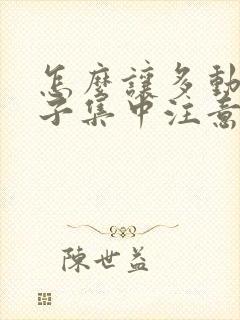 怎麼讓多動
子集中注意
陳世益